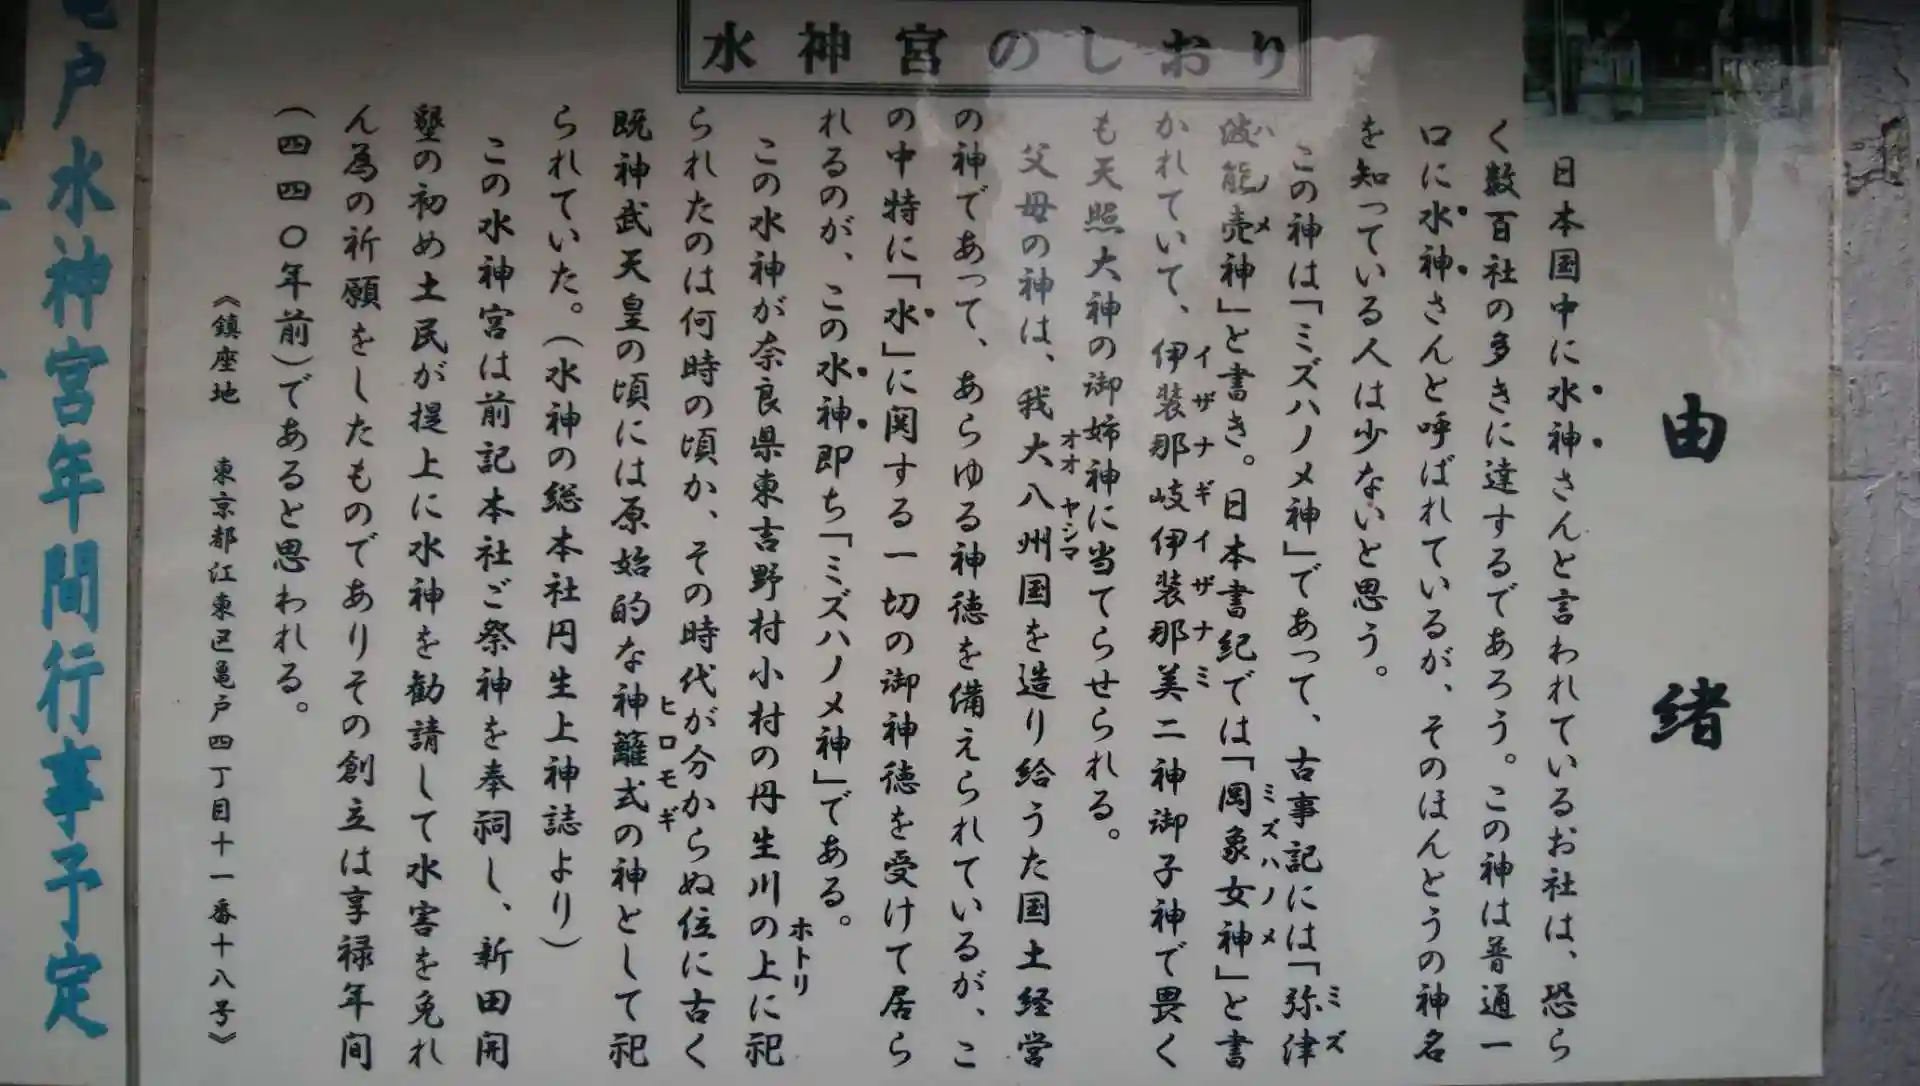 水神宮のしおり
由緒
日本国中に水神さんと言われているお社は、恐ら
く数百社の多きに達するであろう。この神は普通一
口に水神さんと呼ばれているが、そのほんとうの神名
を知っている人は少ないと思う。
この神は「ミズハノメ神」であって、古事記には「弥津
波能売神」と書き。日本書紀では「罔象女神」と書
かれていて、伊装那岐伊装那美二神御子神で畏く
も天照大神の御姉神に当てらせられる。
父母の神は、我大八州国を造り給うた国土経営
の神であって、あらゆる神徳を備えられているが、こ
の中特に「水」に関する一切の御神徳を受けて居ら
れるのが、この水神即ち「ミズハノメ神」である。
この水神が奈良県東吉野村小村の丹生川の上に祀
られたのは何時の頃か、その時代が分からぬ位に古く
既神武天皇の頃には原始的な神籬式の神として祀
られていた。(水神の総本社円生上神誌より)
この水神宮は前記本社ご祭神を奉祠し、新田開
墾の初め土民が提上に水神を勧請して水害を免れ
ん為の祈願をしたものでありその創立は享禄年間
(四四〇年前)であると思われる。
《鎮座地 東京都江東区亀戸四丁目十一番十八号》
ミズ
ハノメ
ミズハノメ
イザナギイザナミ
オオヤシマ
ホトリ
ヒロモギ
亀戸水神宮年間行事予定